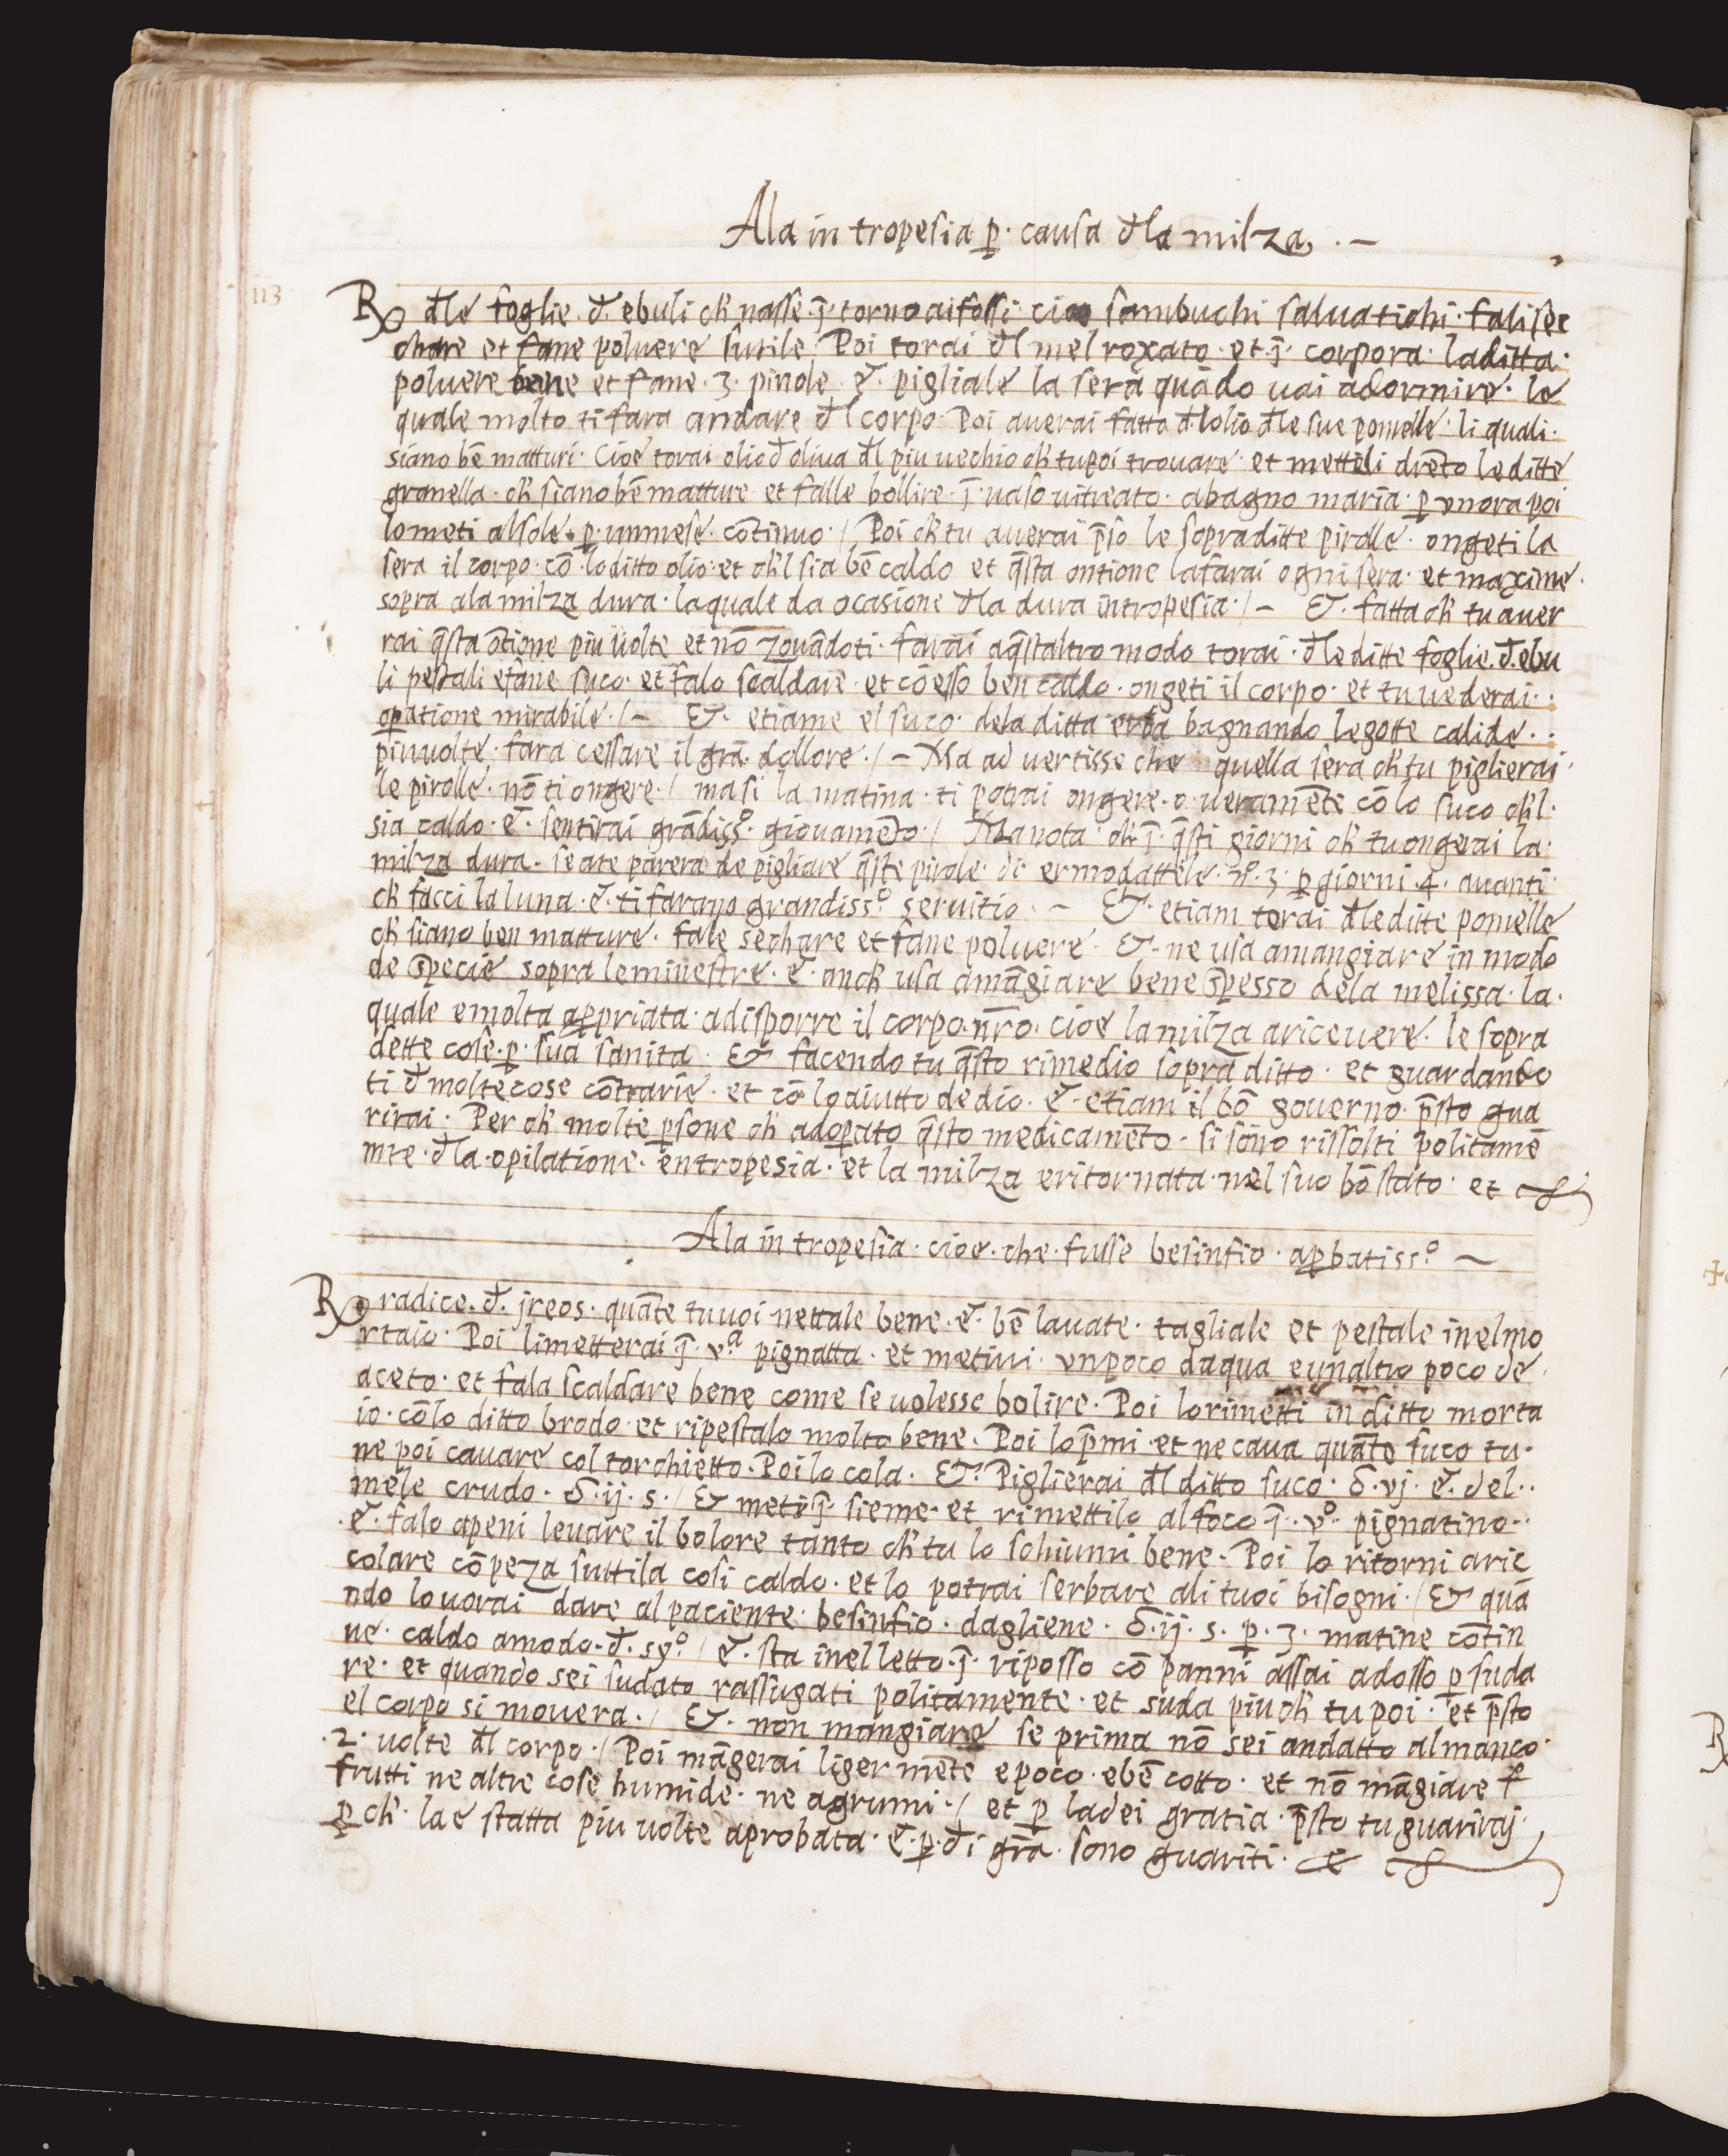 Ala in tropesia p̱. causa đla milza. . –
113
Rx đle foglie. đ. ebuli ch̓ nasse. j̄. torno ai fossi. cioe sambuchi saluatichi. fali sec
chare et fane poluere sutile. Poi torai đl mel roxato. et. j̄. corpora. la ditta.
poluere bene et fane. 3. pirole. &. pigliale la sera quādo uai adormire. le
quale molto ti fara andare đl corpo. Poi auerai fatto đ lolio đle sue pomelle. li quali.
siano bē matturi. Cioe torai olio đ oliua đl piu uechio ch̓ tu poi trouare. et metteli drēto le ditte
granella. ch̓ siano bē matture. et falle bollire. j̄. uaso uitreato. abagno maria. p̱ vnora poi
lo meti al sole. p̱. un mese. cōtinuo. / Poi ch̓ tu auerai p̄so le sopraditte pirolle. ongeti la
sera il corpo. cō. lo ditto olio. et ch̓l sia bē caldo et q̄sta ontione la farai ogni sera. et maxime.
sopra ala milza dura. la quale da ocasione đla dura intropesia. / – &. fatta ch̓ tu auer
rai q̄sta ōtione piu uolte et nō zouādoti. farai a q̄staltro modo torai. đle ditte foglie. đ. ebu
li pestali e fane suco. et falo scaldare. et cō esso ben caldo. ongeti il corpo. et tu uederai. .
op̱atione mirabile. / – &. etiame el suco. dela ditta erba bagnando le gotte calide. .
piu uolte. fara cessare il grā. dollore. / – Ma ad uertisse che quella sera ch̓ tu piglierai.
le pirolle. nō ti ongere. / ma si la matina. ti potrai ongere. o ueramēte cō lo suco ch̓l.
sia caldo. &. sentirai grādiss.º giouamēto. / Ma nota. ch̓ j̄. q̄sti giorni ch̓ tu ongerai la.
milza dura. se ate parera de pigliare q̄ste pirole. di ermodattile. nº. 3. p̱ giorni. 4. auanti.
ch̓ facci la luna. &. ti farano grandiss.º seruitio. – &. etiam torai đle ditte pomelle
ch̓ siano ben matture. fale sechare et fane poluere. &. ne usa a mangiare in modo
de specie sopra le minestre. &. anch̓ usa a māgiare bene spesso dela melissa. la.
quale e molta app̱riata. adisporre il corpo. nr̄o. cioe la milza a riceuere. le sopra
dette cose. p̱. sua sanita. & facendo tu q̄sto rimedio sopra ditto. et guardando
ti đ molte cose cōtrarie. et cō lo aiutto de dio. &. etiam il bō gouerno. p̄sto gua
rirai. Per ch̓ molte p̱sone ch̓ adop̱ato q̄sto medicamēto. si sōno rissolti politamē
nte. đla. opilatione. entropesia. et la milza e ritornata. nel suo bō stato. et
Ala in tropesia. cioe. che. fusse besinfio. ap̱batiss.º –
Rx radice. đ. jreos. quāte tu uoi nettale bene. &. bē lauate. tagliale et pestale in el mo
rtaio. Poi li metterai j̄. v.ª pignatta. et metiui. vn poco daqua e un altro poco de.
aceto. et fala scaldare bene come se uolesse bolire. Poi lo rimetti in ditto morta
io. cō lo ditto brodo. et ripestalo molto bene. Poi lo p̄mi. et ne caua quāto suco tu.
ne poi cauare col torchietto. Poi lo cola. &. Piglierai đl ditto suco. ō. vj. &. del. .
mele crudo. ō. ij. s. / & meti j̄. sieme. et rimettilo al foco j̄. v.º pignatino. .
.&. falo apeni leuare il bolore tanto ch̓ tu lo schiumi bene. Poi lo ritorni a ric
colare cō peza suttila cosi caldo. et lo potrai serbare ali tuoi bisogni. / & quā
ndo lo uorai dare al paciente. besinfio. dagliene. ō. ij. s. p̱. 3. matine cōtin
ue. caldo amodo. đ. sy.º / &. sta in el letto. j̄. riposso cō panni assai adosso p̱ suda
re. et quando sei sudato rassugati politamente. et suda piu ch̓ tu poi. et p̄sto
el corpo si mouera. / &. non mangiare se prima nō sei andatto al manco.
.2. uolte đl corpo. / Poi māgerai ligermēte e poco. e bē cotto. et nō māgiare f
frutti ne altre cose humide. ne agrumi. / et p̱ la dei gratia. p̄sto tu guariraj.
p̱ ch̓. la e statta piu uolte aprobata. &. p̱. đi gr̄a. sono guariti. &